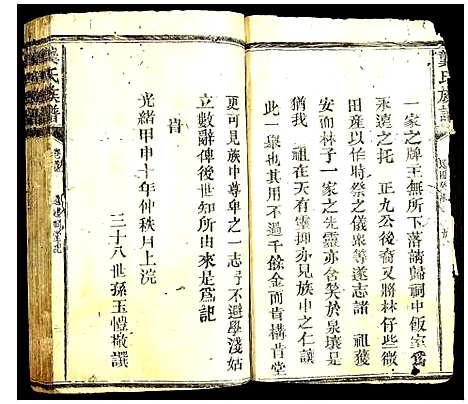 龔氏族譜
一家之牌主無所下落請歸祠中飯室為
汞遠之托 正九公後裔又將林仔些微
田產以怕時祭之儀衆等遂志諸 祖獲
安而林子一家之先靈亦含笑於泉壤是
猶我 祖在天有靈抑亦見族中之仁讓
此一舉也其用不過千餘金而肯構肯堂
更可見族中尊卑之一志予不避學淺姑
立數辭俾後世知所由來是為記
旹
光緒甲申十年仲秋月上浣
三十八世孫玉愷撰
龔氏族譜